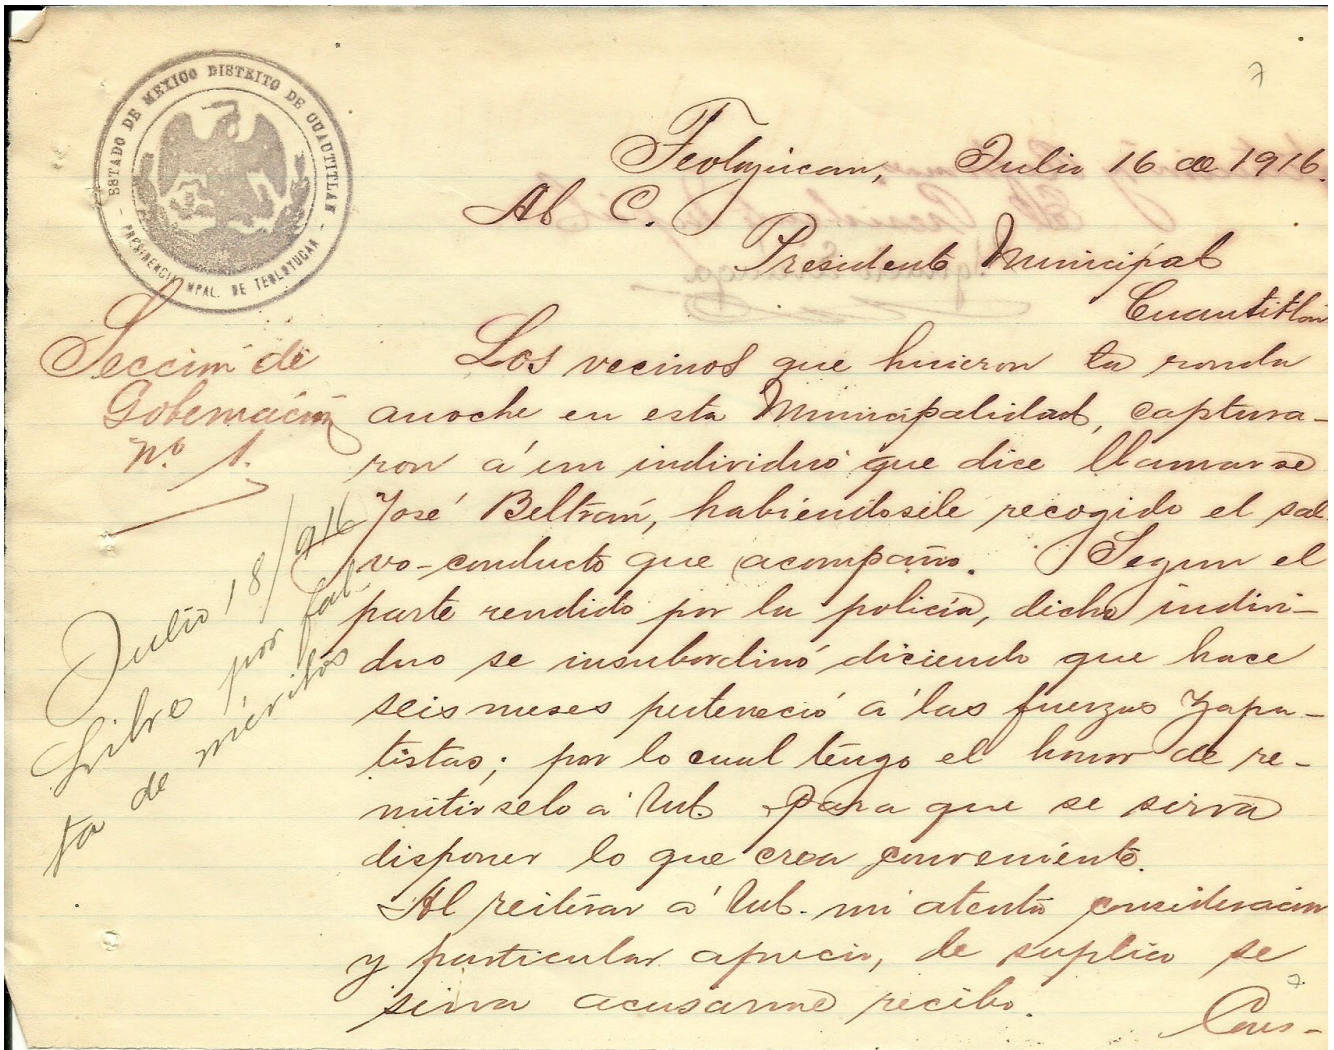 7
ESTADO DE MEXICO DISTRITO DE CUAUTITLAN
PRESIDENCIA MPAL. DE TEOLOYUCAN
Teoloyucan, Julio 16 de 1916.
Al C.
Presidente Municipal
Cuautitlan
Sección de
Gobernación
No. 1.
Los vecinos que hicieron la ronda
anoche en esta Municipalidad, captura-
ron á un individuo que dice llamarse
José Beltrán, habiendosele recogido el sal
vo-conducto que acompaño. Segun el
parte rendido por la policía, dicho indivi-
duo se insubordinó diciendo que hace
seis meses perteneció á las fuerzas Zapa-
tistas; por lo cual tengo el honor de re-
mitirselo á Ud. para que se sirva
disponer lo que crea conveniente.
Al reiterar á Ud. mi atenta consideración
y particular aprecio, le suplico se
sirva acusarme recibo.
Cons-
7
Julio 18/916
Libre por fal-
ta de méritos